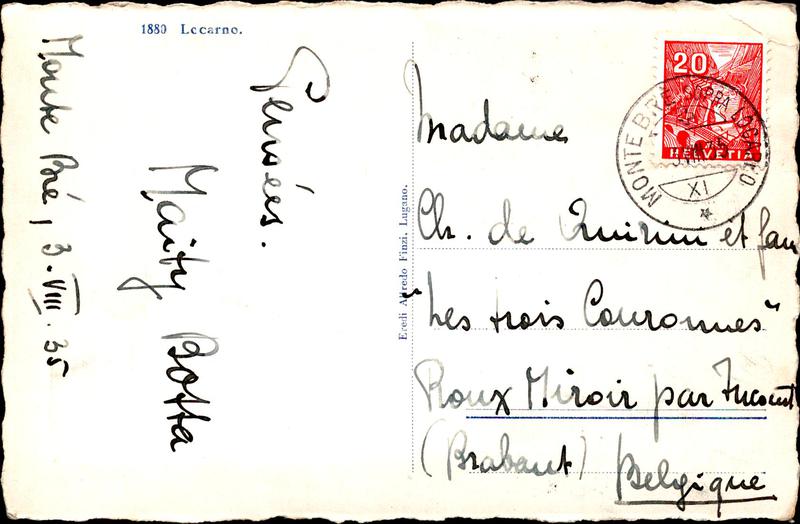 1880 Locarno.
Monte Bré, 3.VIII.35
Pensées.
Maity Botta
Eredi Alfredo Finzi, Lugano.
20
HELVETIA
MONTE BRÈ SOPRA LOCARNO
XI
Madame
Ch. de Quirini et fam
"Les trois Couronnes"
Roux Miroir par Incourt
(Brabant) Belgique